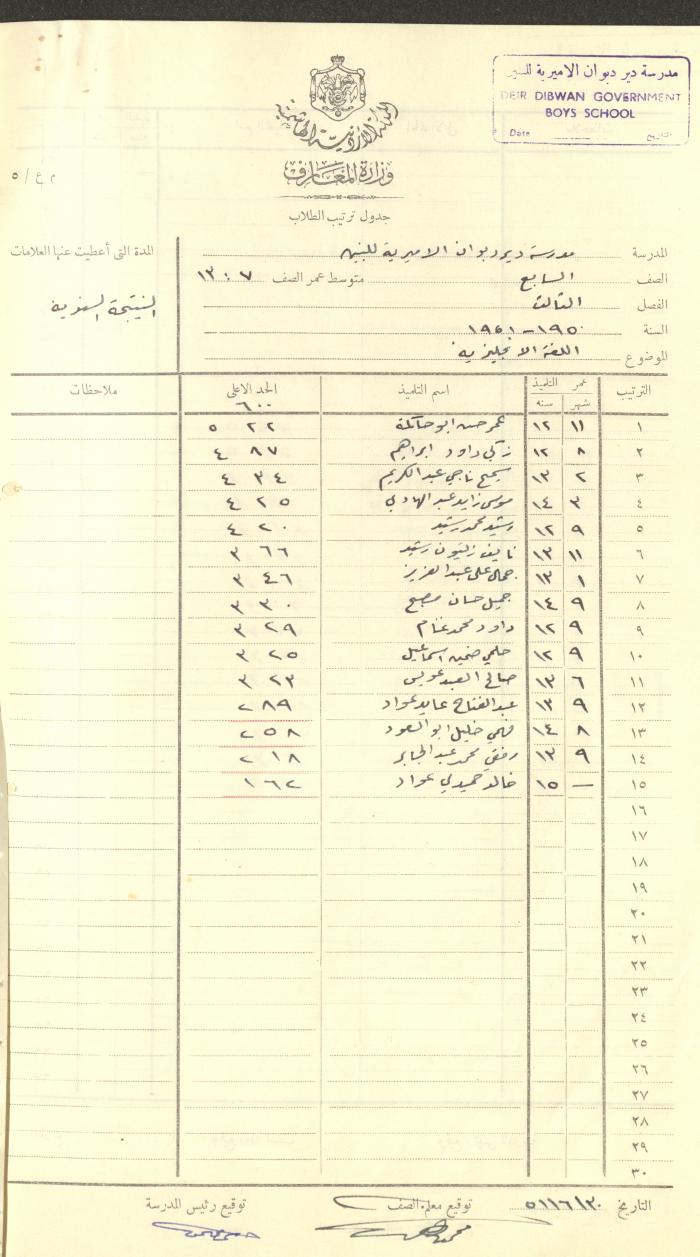 مدرسة دير دبوان الاميرية للبنين
DEIR DIBWAN GOVERNMENT
BOYS SCHOOL
Date التاريخ
المملكة الأردنية الهاشمية
وزارة المعارف
م ع / ٥
جدول ترتيب الطلاب
المدرسة مدرسة ديردبوان الاميرية للبنين
المدة التى أعطيت عنها العلامات
الصف السابع متوسط عمر الصف ١٣:٠٧
الفصل الثالث
النتيجة السنوية
السنة ١٩٥٠-١٩٥١
الموضوع اللغة الانجليزية
الترتيب عمر التلميذ اسم التلميذ الحد الاعلى ملاحظات
شهر سنه ٦٠٠
١ ١١ ١٢ عمر حسن ابو حاكمة ٥٢٢
٢ ٨ ١٢ زكي داود ابراهيم ٤٨٧
٣ ٢ ١٣ سميح ناجي عبد الكريم ٤٣٤
٤ ٣ ١٤ موسى زايد عبد الهادي ٤٢٥
٥ ٩ ١٢ رشيد محمد رشيد ٤٢٠
٦ ١١ ١٣ نايف رشيد ٣٦٦
٧ ١ ١٣ جمال علي عبد العزيز ٣٤٦
٨ ٩ ١٤ جميل حسان مصبح ٣٣٠
٩ ٩ ١٢ داود محمد غنام ٣٢٩
١٠ ٩ ١٢ حلمي اسماعيل ٣٢٥
١١ ٦ ١٣ صالح العبد عويس ٣٢٣
١٢ ٩ ١٣ عبد الفتاح عايد عواد ٢٨٩
١٣ ٨ ١٤ فهمي خليل ابو السعود ٢٥٨
١٤ ٩ ١٣ رفقي محمد عبد الجابر ٢١٨
١٥ — ١٥ خالد حميدي عواد ١٦٢
١٦
١٧
١٨
١٩
٢٠
٢١
٢٢
٢٣
٢٤
٢٥
٢٦
٢٧
٢٨
٢٩
٣٠
التاريخ ٥١/٦/٣٠ توقيع معلم الصف توقيع رئيس المدرسة